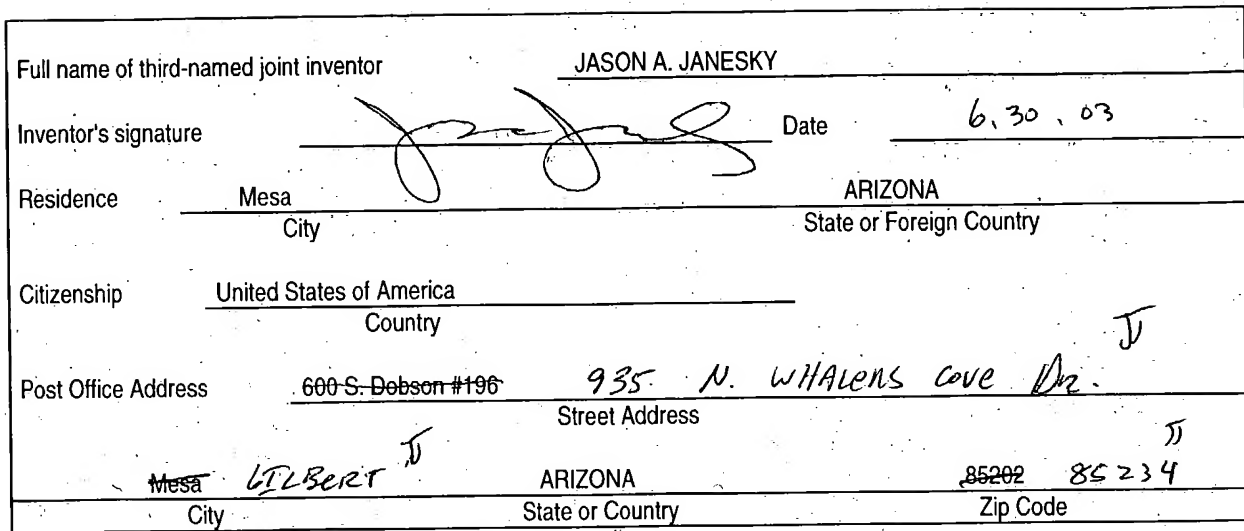 Full name of third-named joint inventor JASON A. JANESKY
Inventor's signature Date 6.30.03
Residence Mesa ARIZONA
City State or Foreign Country
Citizenship United States of America
Country
JJ
Post Office Address 600 S. Dobson #196 935 N. WHALENS COVE DR.
Street Address
JJ JJ
Mesa GILBERT ARIZONA 85202 85234
City State or Country Zip Code